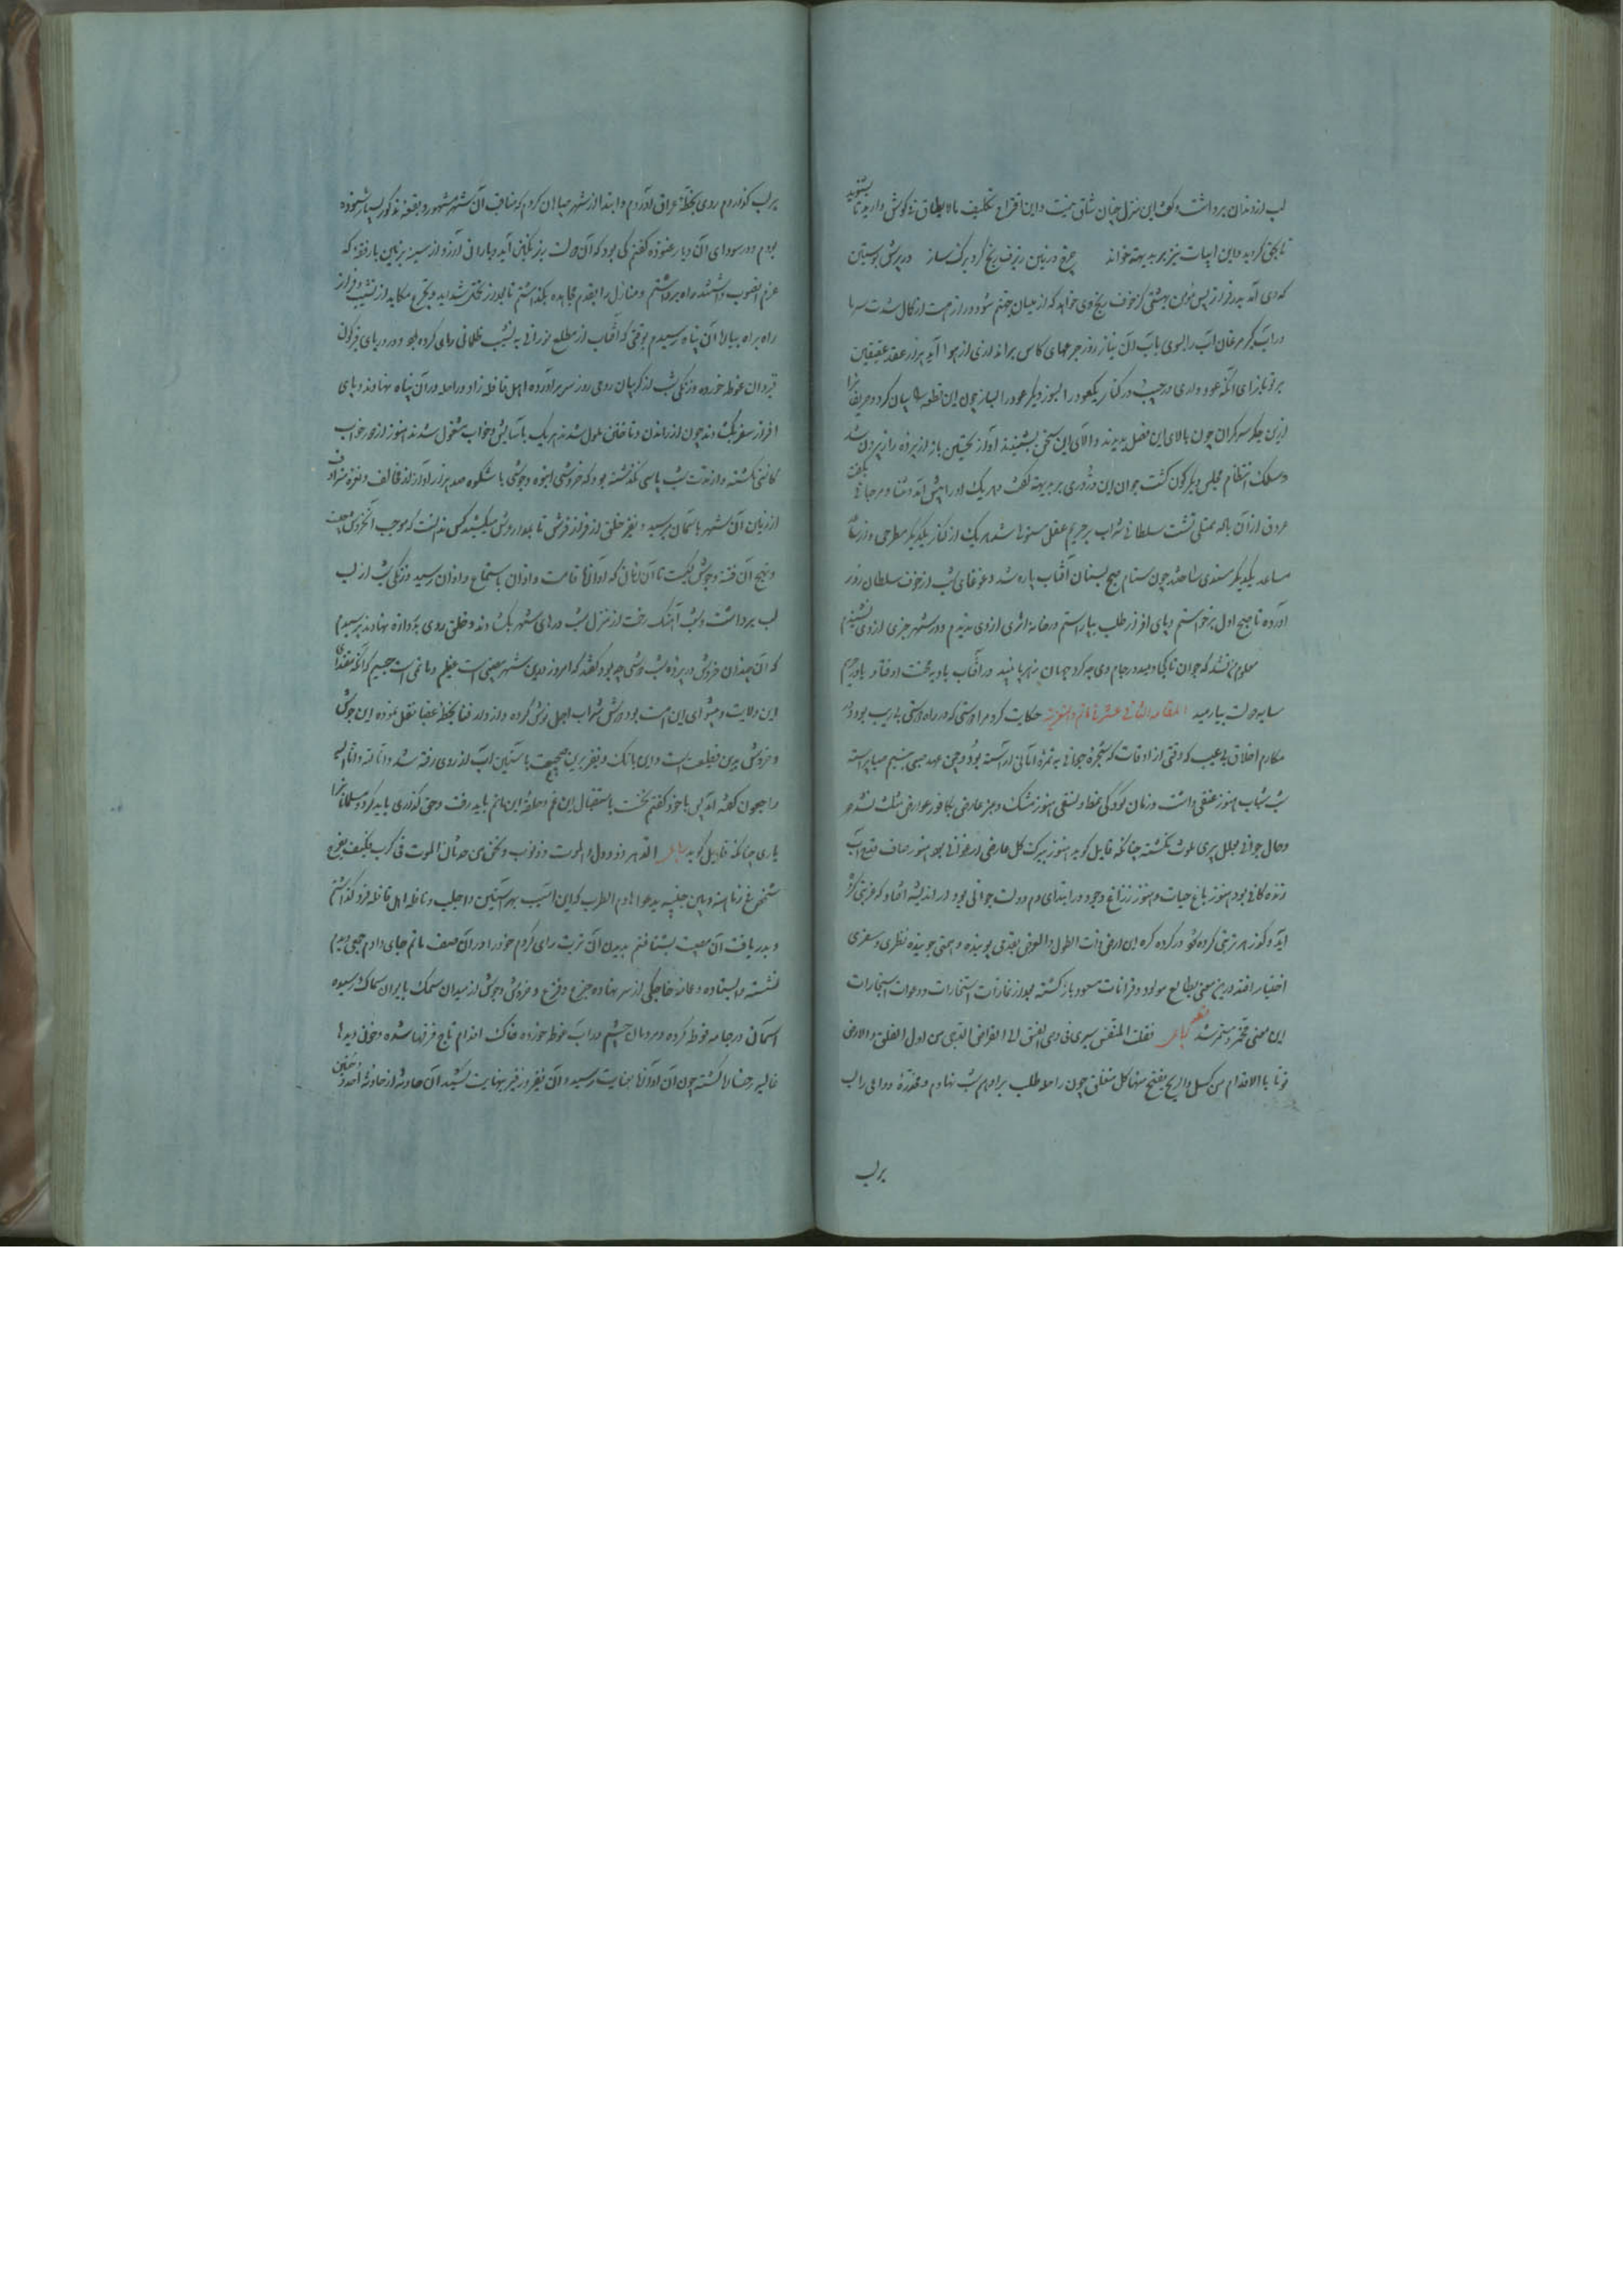 لب از دندان برداشت و گفت این منزل چنان شاق نیست و این اقتراح تکلیف مالایطاق نی گوش دارید تا بشنوید
تا یخی کردید و این ابیات نیز بر بدیهه خواند چرخ در زمین زبرف ریخ کرد برک ساز در پوش پوستین
که دی آمد بدر فراز بس مؤمن بهشتی کز خوف یخ وی خواهد که از میان جهنم شود در از هست از کمال شدت سرما
در آب گرم مرغان آب را سوی باب زن نیاز روز جرعهای کاس براندازی از هوا آید بر از عقد عقیقین
بر تو باز ای آنکه عود داری در جیب و در کنار یک عود را بسوز و دیگر عود را بساز چون این قطعه بیان کرد و حریفانرا
ازین جگر سبک گران چون بالای این فضل بدیدند و الای این سخن بشنیدند آواز تحسین باز از پرده راز بیرون شد
و سلک انتظام مجلس دیگر گون گشت جوان این دُرّ دری بر بدیهه بگفت و هر یک او را پیش آمد و ثنا و مرحبائی بگفت
عروق از آن باده ممتلی گشت سلطان شراب بر حریم عقل مستولی شد هر یک از کنار یکدیگر مطرحی و از
ساعد یکدیگر مسندی ساختند چون سنام صبح بسنان آفتاب پاره شد و غوغای شب از خوف سلطان روز
آواره تا صبح اول برخواستم و پای افزار طلب بیاراستم در خانه اثری از وی ندیدم و در شهر خبری از وی نشنیدم
معلوم من نشد که جوان تا کجا رسید و در جام وی چه کرد جهان زهر یا نبید در آفتاب بادیه محنت اوفتاد یا در حریم
سایه دولت بیارمید المقامه الثانی عشر فی ماتم والتعزیة حکایت کرد مرا دوستی که در راه دوستی بی ریب بود و در
مکارم اخلاق بی عیب که وقتی از اوقات که شجره جوانی به ثمره امانی آراسته بود و چمن عهد صبی بنسیم صبا پیراسته
شب شباب هنوز غسقی داشت و زمان کودکی خط و نسقی هنوز مشک و عنبر عارض بکافور عوارض مثلث نشده
و حال جوانی مجلل پیری ملوث نگشته چنانکه قایل گوید هنوز بر برک گل عارض ارغوانی بود هنوز صاف قدح آب
زندگانی بود هنوز باغ حیات و هنوز زراغ وجود در ابتدای دم دولت جوانی بود در اندیشه افتاد که غربتی کرده
آید و گوز هر تربتی کرده شود در گرد کره این ارض ذات الطول والعرض بقدمی پوینده و همتی جوینده نظری و سفری
اختیار افتد درین معنی بطالع مولود و قرانات مسعود بازگشته بعد از تفاءلات استخارات و دعوات استجارات
این معنی مخمر و مستمر شد فقلت للنفس سیری فی دجی الغسق الی اقراض الدجی من اول الفلق والارض
فوتا بالاقدام من کسل والریح یفتح منها کل منغلق چون راحله طلب بر ادهم شب نهادم و مخدره دواعی را لب
برلب
بر لب گذاردم روی بخطهٔ عراق آوردم و ابتدا از شهر صباهان کردم که مناقب آن شهر مشهور و بقعه مذکور بسیار شنوده
بودم و در سودای آن دیار غنوده گفتم کی بود که آن دولت بزیر نگین آید و باران آرزو از سینه بزمین بارقه‌ که
عزم الغیوب داشتند راه برداشتم و منازل را بقدم مجاهده بگذاشتم تا بعد از تحمل شداید و تجرع مکاید از نشیب و فراز
راه براه بیالا آن پناه رسیدم بوقتی که آفتاب از مطلع نورانی به نشیب ظلمانی رای کرده بود و در دریای نیلگون
قیروان غوطه خورده و زنگی شب از گریبان رومی روز سر برآورده اهل قافله زاد و راحله در آن پناه نهادند و پای
افزار سفر بگشادند چون از راندن و تاختن ملول شدند هر یک بآسایش و خواب مشغول شدند هنوز از دور خواب
کاسی نگشته و از مدت شب پاسی نگذشته بود که خروشی انبوه و جوشی باشکوه صد هزار آواز از قالب و نعره مترادف
از زمین آن شهر بآسمان رسید و نفیر خلق از فراز فرش تا بمدار عرش میکشید کس ندانست که موجب آن خروش چیست
و نیح آن فتنه و جوش کیست تا آن زمان که آواز اقامت و اذان باستماع و اذان رسید و زنگی شب از لب
لب برداشت و شب آهنگ رخت از منزل شب درهای شهر بگشادند و خلق روی بدروازه نهادند پرسیدم
که آن چندان خروش در پرده شب دوشین چه بود گفتند که امروز درین شهر مصیبتی است عظیم و ماتمی است جسیم که آنکه مقتدای
این ولایت و پیشوای این امت بود دوش شراب اجل نوش کرده و از دار فنا بخطهٔ عقبا نقل نموده این جوش
و خروش بدین فظیعت است و این بانگ و نفیر برین فجیعت بآستین آب از روی رفته شد و انا لله و انا الیه
راجعون گفته آمد پس با خود گفتم نخست باستقبال این غم و حلقهٔ این ماتم باید رفت و حق گذاری باید کرد و مسلمانانرا
یاری چنانکه قایل گوید الدهر ذو دول والموت ذو نوب ونحن من حدثان الموت فی کرب فکیف یفرح
شخص فی زمانه وبین جنبیه یدعو هادم الطرب کزاین آسیب بهر آستین و اجلب و قافله اهل قافله فرو گذاشتم
و بدریافت آن مصیبت بشتافتم بدیدن آن تربت رای کردم خود را در آن صف ماتم جای دادم جمعی دیدم
نشسته و ایستاده و عمامه خواجگی از سر نهاده جزع و فزع و خروش و جوش از میدان سمک بایوان سماک رسیده
آسمانی در جامه فوطه کرده و مردمان چشم در آب غوطه خورده خاک اقدام تاج فرقها شده و خون دیدها
غالیه رخسارها گشته چون آن آوازها بغایت رسید و آن نفیر و زفیر بنهایت کشید آن حادثه از حادثهٔ اُحد و حُنین